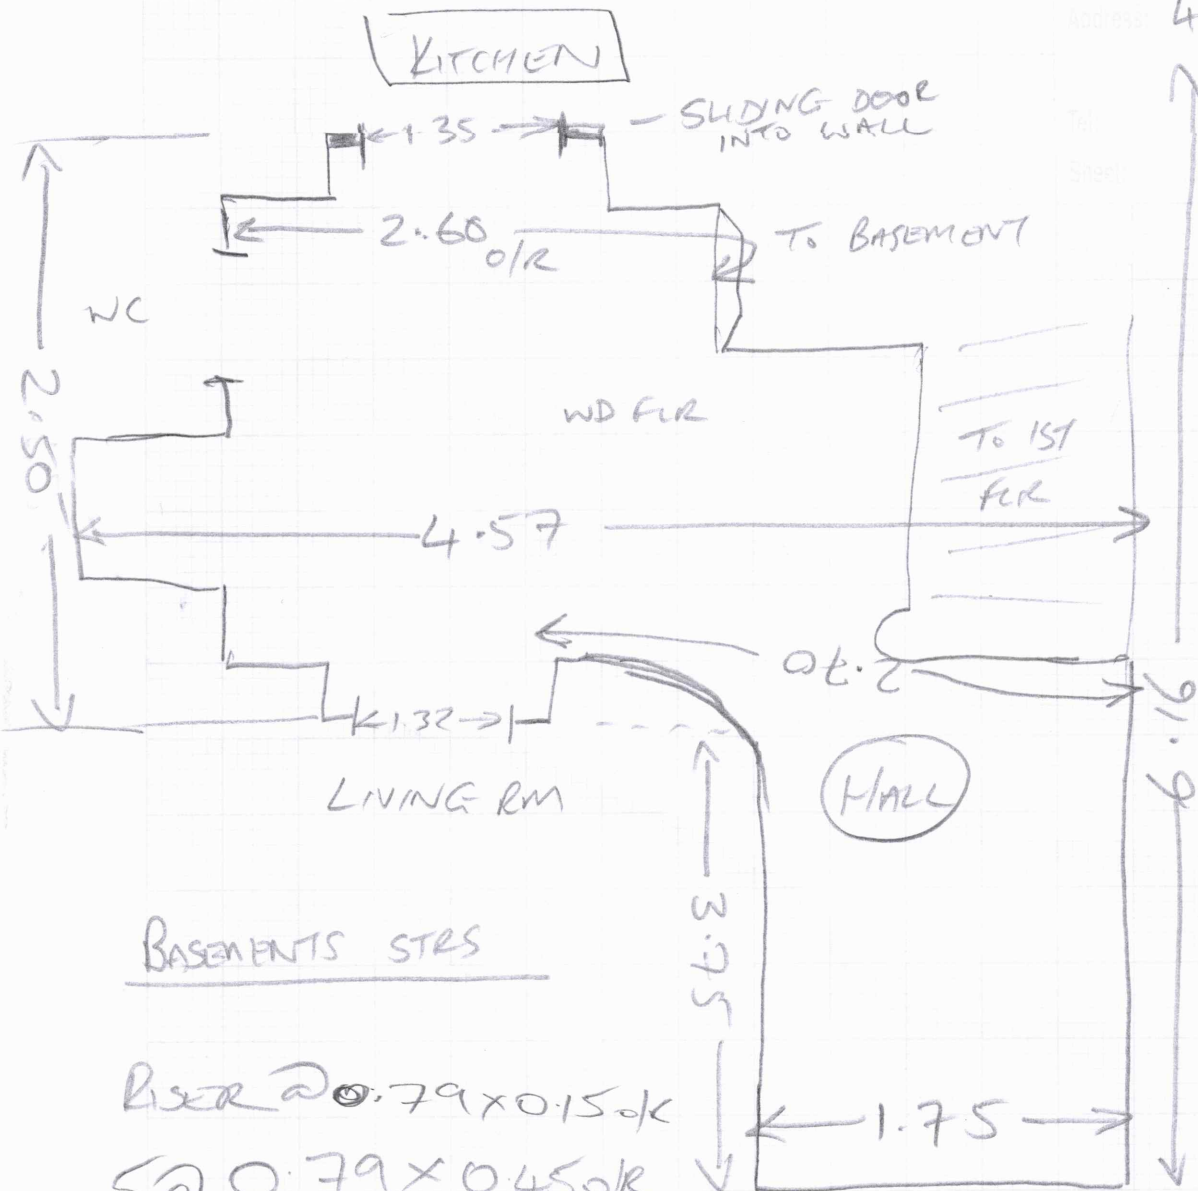 KITCHEN
1.35
SLIDING DOOR
INTO WALL
2.60
O/R
TO BASEMENT
WC
2.50
WD FLR
TO 1ST
FLR
4.57
2.70
1.32
LIVING RM
HALL
3.75
BASEMENTS STRS
RISER @ 0.79 X 0.15 o/R
5 @ 0.79 X 0.45 o/R
1.75